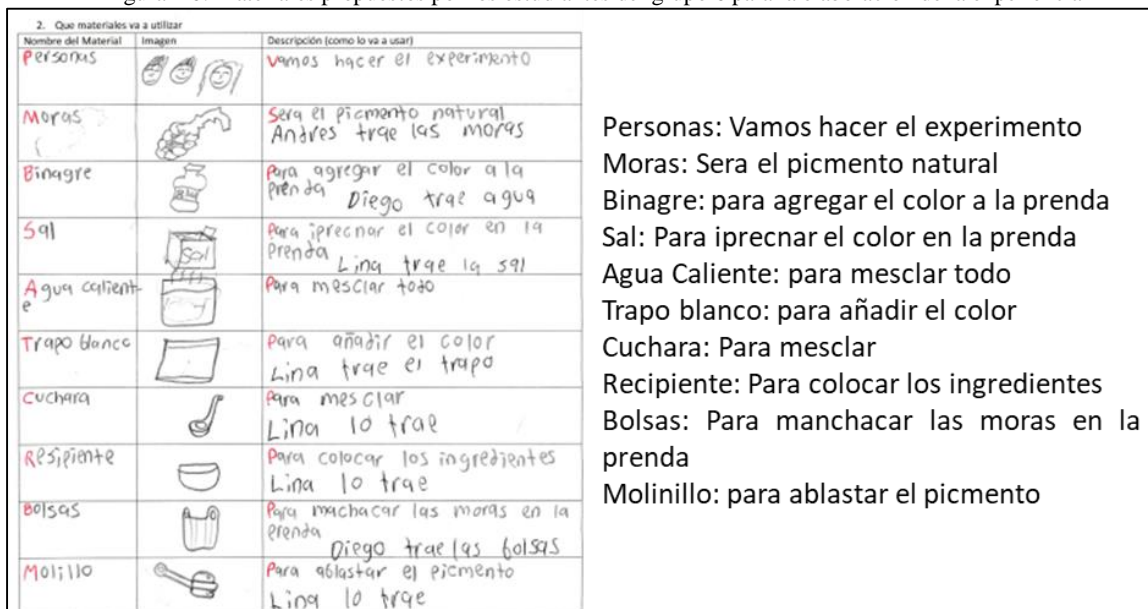 2. Que materiales va a utilizar
Nombre del Material Imagen Descripción (como lo va a usar)
Personas Vamos hacer el experimento
Moras Sera el picmento natural
Andres trae las moras
Binagre Para agregar el color a la
prenda Diego trae agua
Sal Para iprecnar el color en la
Prenda Lina trae la sal
Sal
Agua calient
e Para mesclar todo
Trapo blanco Para añadir el color
Lina trae el trapo
Cuchara Para mesclar
Lina lo trae
Resipiente Para colocar los ingredientes
Lina lo trae
Bolsas Para machacar las moras en la
prenda
Diego trae las bolsas
Molillo Para ablastar el picmento
Lina lo trae
Personas: Vamos hacer el experimento
Moras: Sera el picmento natural
Binagre: para agregar el color a la prenda
Sal: Para iprecnar el color en la prenda
Agua Caliente: para mesclar todo
Trapo blanco: para añadir el color
Cuchara: Para mesclar
Recipiente: Para colocar los ingredientes
Bolsas: Para manchacar las moras en la
prenda
Molinillo: para ablastar el picmento